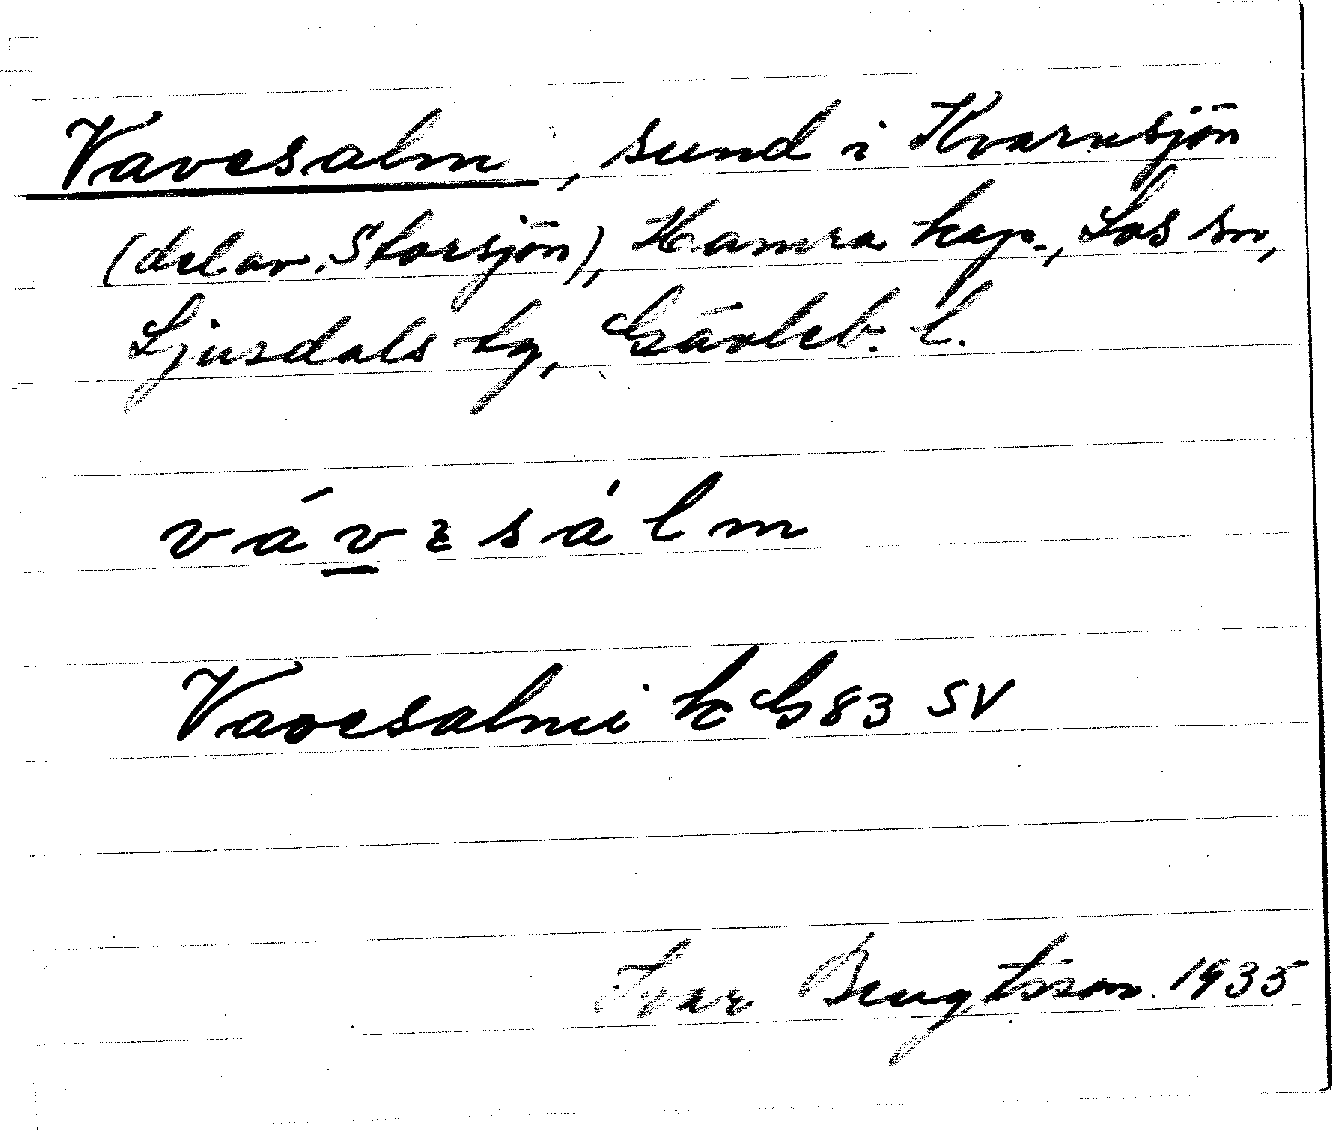 Vavesalm, sund i Kvarnsjön
(del av Storsjön), Hamra kap., Los sn,
Ljusdals tg, Gävleb. l.
vávɛsálm
Vavesalmi k G83 SV
Ivar Bengtsson 1935